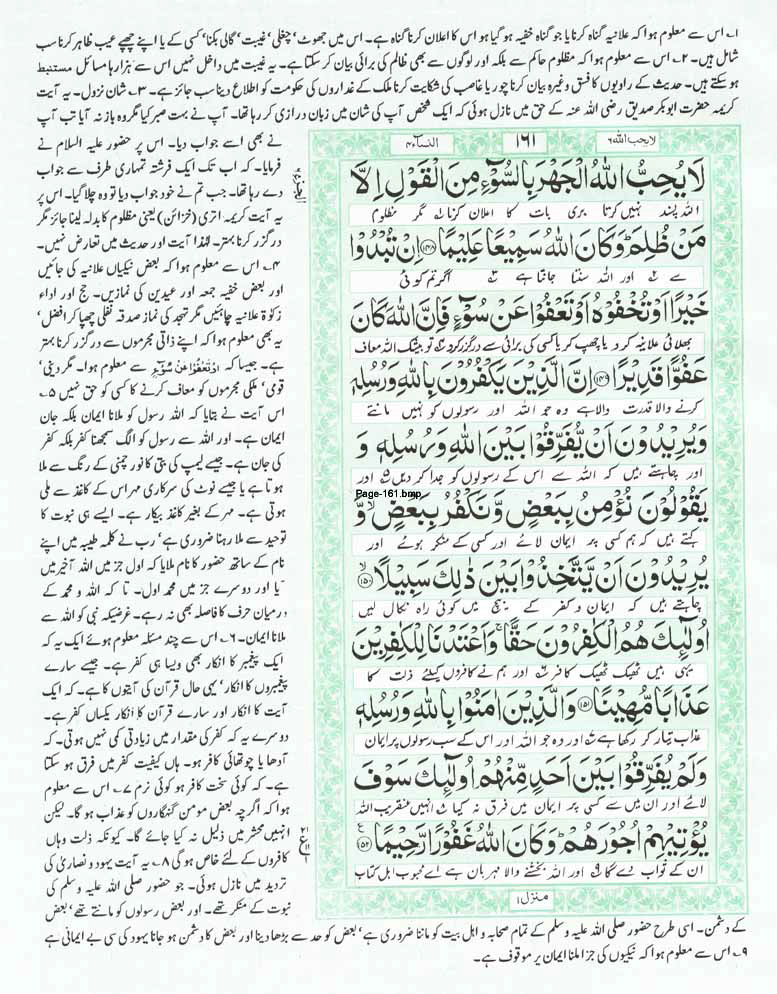 ۱؎ اس سے معلوم ہوا کہ علانیہ گناہ کرنا یا جو گناہ خفیہ ہو گیا ہو اس کا اعلان کرنا گناہ ہے۔ اس میں جھوٹ' چغلی' غیبت' گالی بکنا' کسی کے یا اپنے چھپے عیب ظاہر کرنا سب
شامل ہیں۔ ۲؎ اس سے معلوم ہوا کہ مظلوم حاکم سے بلکہ اور لوگوں سے بھی ظالم کی برائی بیان کر سکتا ہے۔ یہ غیبت میں داخل نہیں اس سے ہزار ہا مسائل مستنبط
ہو سکتے ہیں۔ حدیث کے راویوں کا فسق وغیرہ بیان کرنا چور یا غاصب کی شکایت کرنا ملک کے غداروں کی حکومت کو اطلاع دینا سب جائز ہے۔ ۳؎ شان نزول۔ یہ آیت
کریمہ حضرت ابوبکر صدیق رضی اللہ عنہ کے حق میں نازل ہوئی کہ ایک شخص آپ کی شان میں زبان درازی کر رہا تھا۔ آپ نے بہت صبر کیا مگر وہ باز نہ آیا تب آپ
لا یحب اللہ ۶
۱۶۱
النساء ۴
لَا يُحِبُّ اللّٰهُ الْجَهْرَ بِالسُّوْٓءِ مِنَ الْقَوْلِ اِلَّا
اللہ پسند نہیں کرتا بری بات کا اعلان کرنا مگر مظلوم
مَنْ ظُلِمَ ؕ وَكَانَ اللّٰهُ سَمِيْعًا عَلِيْمًا ﴿۱۴۸﴾ اِنْ تُبْدُوْا
سے اور اللہ سنتا جانتا ہے اگر تم کوئی
خَيْرًا اَوْ تُخْفُوْهُ اَوْ تَعْفُوْا عَنْ سُوْٓءٍ فَاِنَّ اللّٰهَ كَانَ
بھلائی علانیہ کرو یا چھپ کر یا کسی کی برائی سے درگزر کرو تو بیشک اللہ معاف
عَفُوًّا قَدِيْرًا ﴿۱۴۹﴾ اِنَّ الَّذِيْنَ يَكْفُرُوْنَ بِاللّٰهِ وَرُسُلِهٖ
کرنے والا قدرت والا ہے وہ جو اللہ اور رسولوں کو نہیں مانتے
وَيُرِيْدُوْنَ اَنْ يُّفَرِّقُوْا بَيْنَ اللّٰهِ وَرُسُلِهٖ وَ
اور چاہتے ہیں کہ اللہ سے اس کے رسولوں کو جدا کر دیں اور
Page-161.bmp
يَقُوْلُوْنَ نُؤْمِنُ بِبَعْضٍ وَّنَكْفُرُ بِبَعْضٍ ۙ وَّ
کہتے ہیں کہ ہم کسی پر ایمان لائے اور کسی کے منکر ہوئے اور
يُرِيْدُوْنَ اَنْ يَّتَّخِذُوْا بَيْنَ ذٰلِكَ سَبِيْلًا ۙ﴿۱۵۰﴾
چاہتے ہیں کہ ایمان و کفر کے بیچ میں کوئی راہ نکال لیں
اُولٰٓئِكَ هُمُ الْكٰفِرُوْنَ حَقًّا ۚ وَاَعْتَدْنَا لِلْكٰفِرِيْنَ
یہی ہیں ٹھیک ٹھیک کافر اور ہم نے کافروں کیلئے ذلت کا
عَذَابًا مُّهِيْنًا ﴿۱۵۱﴾ وَالَّذِيْنَ اٰمَنُوْا بِاللّٰهِ وَرُسُلِهٖ
عذاب تیار کر رکھا ہے اور وہ جو اللہ اور اس کے سب رسولوں پر ایمان
وَلَمْ يُفَرِّقُوْا بَيْنَ اَحَدٍ مِّنْهُمْ اُولٰٓئِكَ سَوْفَ
لائے اور ان میں سے کسی پر ایمان میں فرق نہ کیا انہیں عنقریب اللہ
يُؤْتِيْهِمْ اُجُوْرَهُمْ ؕ وَكَانَ اللّٰهُ غَفُوْرًا رَّحِيْمًا ﴿۱۵۲﴾
ان کے ثواب دے گا اور اللہ بخشنے والا مہربان ہے اے محبوب اہل کتاب
منزل ۱
نے بھی اسے جواب دیا۔ اس پر حضور علیہ السلام نے
فرمایا۔ کہ اب تک ایک فرشتہ تمہاری طرف سے جواب
دے رہا تھا۔ جب تم نے خود جواب دیا تو وہ چلا گیا۔ اس پر
یہ آیت کریمہ اتری (خزائن) یعنی مظلوم کا بدلہ لینا جائز مگر
درگزر کرنا بہتر۔ لہٰذا آیت اور حدیث میں تعارض نہیں۔
۴؎ اس سے معلوم ہوا کہ بعض نیکیاں علانیہ کی جائیں
اور بعض خفیہ جمعہ اور عیدین کی نمازیں۔ حج اور اداء
زکوٰۃ علانیہ چاہئیں مگر تہجد کی نماز صدقہ نفلی چھپا کر افضل'
یہ بھی معلوم ہوا کہ اپنے ذاتی مجرموں سے درگزر کرنا بہتر
ہے۔ جیسا کہ اَوْ تَعْفُوْا عَنْ سُوْٓءٍ سے معلوم ہوا۔ مگر دینی'
قومی' ملکی مجرموں کو معاف کرنے کا کسی کو حق نہیں ۵؎
اس آیت نے بتایا کہ اللہ رسول کو ملانا ایمان بلکہ جان
ایمان ہے۔ اور اللہ سے رسول کو الگ سمجھنا کفر بلکہ کفر
کی جان ہے۔ جیسے لیمپ کی بتی کا نور چمنی کے رنگ سے ملا
ہوتا ہے یا جیسے نوٹ کی سرکاری مہر اس کے کاغذ سے ملی
ہوتی ہے۔ مہر کے بغیر کاغذ بیکار ہے۔ ایسے ہی نبوت کا
توحید سے ملا رہنا ضروری ہے' رب نے کلمہ طیبہ میں اپنے
نام کے ساتھ حضور کا نام ملایا کہ اول جز میں اللہ آخر میں
آیا اور دوسرے جز میں محمد اول۔ تا کہ اللہ و محمد کے
درمیان حرف کا فاصلہ بھی نہ رہے۔ غرضیکہ نبی کو اللہ سے
ملانا ایمان۔ ۶؎ اس سے چند مسئلہ معلوم ہوئے ایک یہ کہ
ایک پیغمبر کا انکار بھی ویسا ہی کفر ہے۔ جیسے سارے
پیغمبروں کا انکار' یہی حال قرآن کی آیتوں کا ہے۔ کہ ایک
آیت کا انکار اور سارے قرآن کا انکار یکساں کفر ہے۔
دوسرے یہ کہ کفر کی مقدار میں زیادتی کمی نہیں ہوتی۔ کہ
آدھا یا چوتھائی کافر ہو۔ ہاں کیفیت کفر میں فرق ہو سکتا
ہے۔ کہ کوئی سخت کافر ہو کوئی نرم ۷؎ اس سے معلوم
ہوا کہ اگرچہ بعض مومن گنہگاروں کو عذاب ہو گا۔ لیکن
انہیں محشر میں ذلیل نہ کیا جائے گا۔ کیونکہ ذلت وہاں
کافروں کے لئے خاص ہو گی ۸؎ یہ آیت یہود و نصاریٰ کی
تردید میں نازل ہوئی۔ جو حضور صلی اللہ علیہ وسلم کی
نبوت کے منکر تھے۔ اور بعض رسولوں کو مانتے تھے' بعض
کے دشمن۔ اسی طرح حضور صلی اللہ علیہ وسلم کے تمام صحابہ و اہل بیت کو ماننا ضروری ہے' بعض کو حد سے بڑھا دینا اور بعض کا دشمن ہو جانا یہود کی سی بے ایمانی ہے
۹؎ اس سے معلوم ہوا کہ نیکیوں کی جزا ملنا ایمان پر موقوف ہے۔